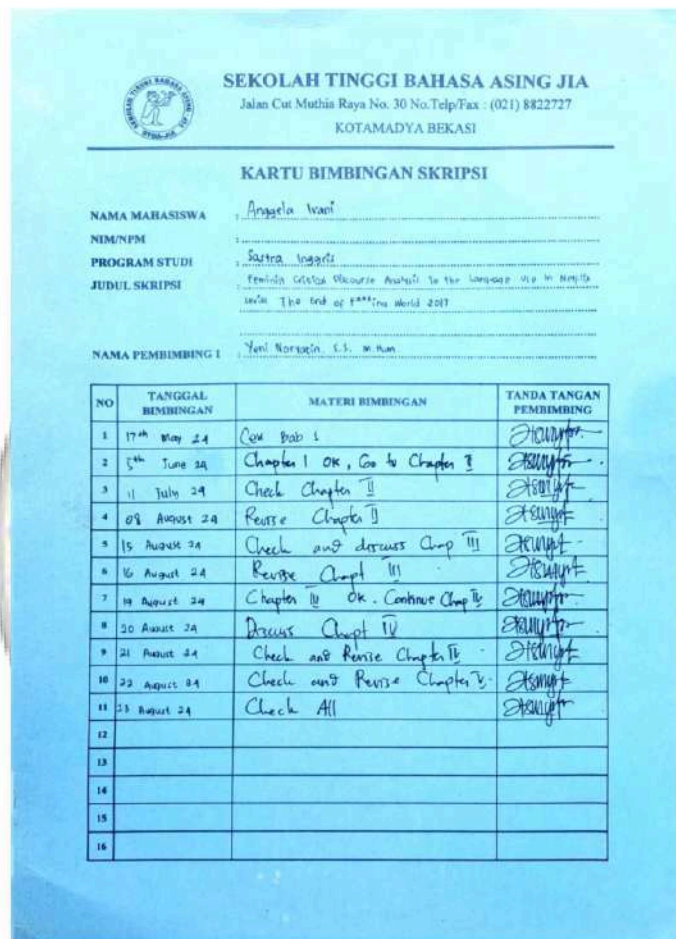 SEKOLAH TINGGI BAHASA ASING JIA
Jalan Cut Muthia Raya No. 30 No.Telp/Fax : (021) 8822727
KOTAMADYA BEKASI
KARTU BIMBINGAN SKRIPSI
NAMA MAHASISWA : Anggela Ivani
NIM/NPM :
PROGRAM STUDI : Sastra Inggris
JUDUL SKRIPSI : Feminis Critical Discourse Analysis In the Language Use In Netflix
The End of F***ing World 2017
NAMA PEMBIMBING I : Yeni S.S. M.Hum.
NO TANGGAL BIMBINGAN MATERI BIMBINGAN TANDA TANGAN PEMBIMBING
1 17th May 24 Bab 1
2 5th June 24 Chapter I OK, Go to Chapter II
3 11 July 24 Check Chapter II
4 08 August 24 Revise Chapter II
5 15 August 24 Check and discuss Chap III
6 16 August 24 Revise Chapt III
7 19 August 24 Chapter III OK. Continue Chap IV
8 20 August 24 Discuss Chapt IV
9 21 August 24 Check and Revise Chapter IV
10 22 August 24 Check and Revise Chapter V.
11 23 August 24 Check All
12
13
14
15
16